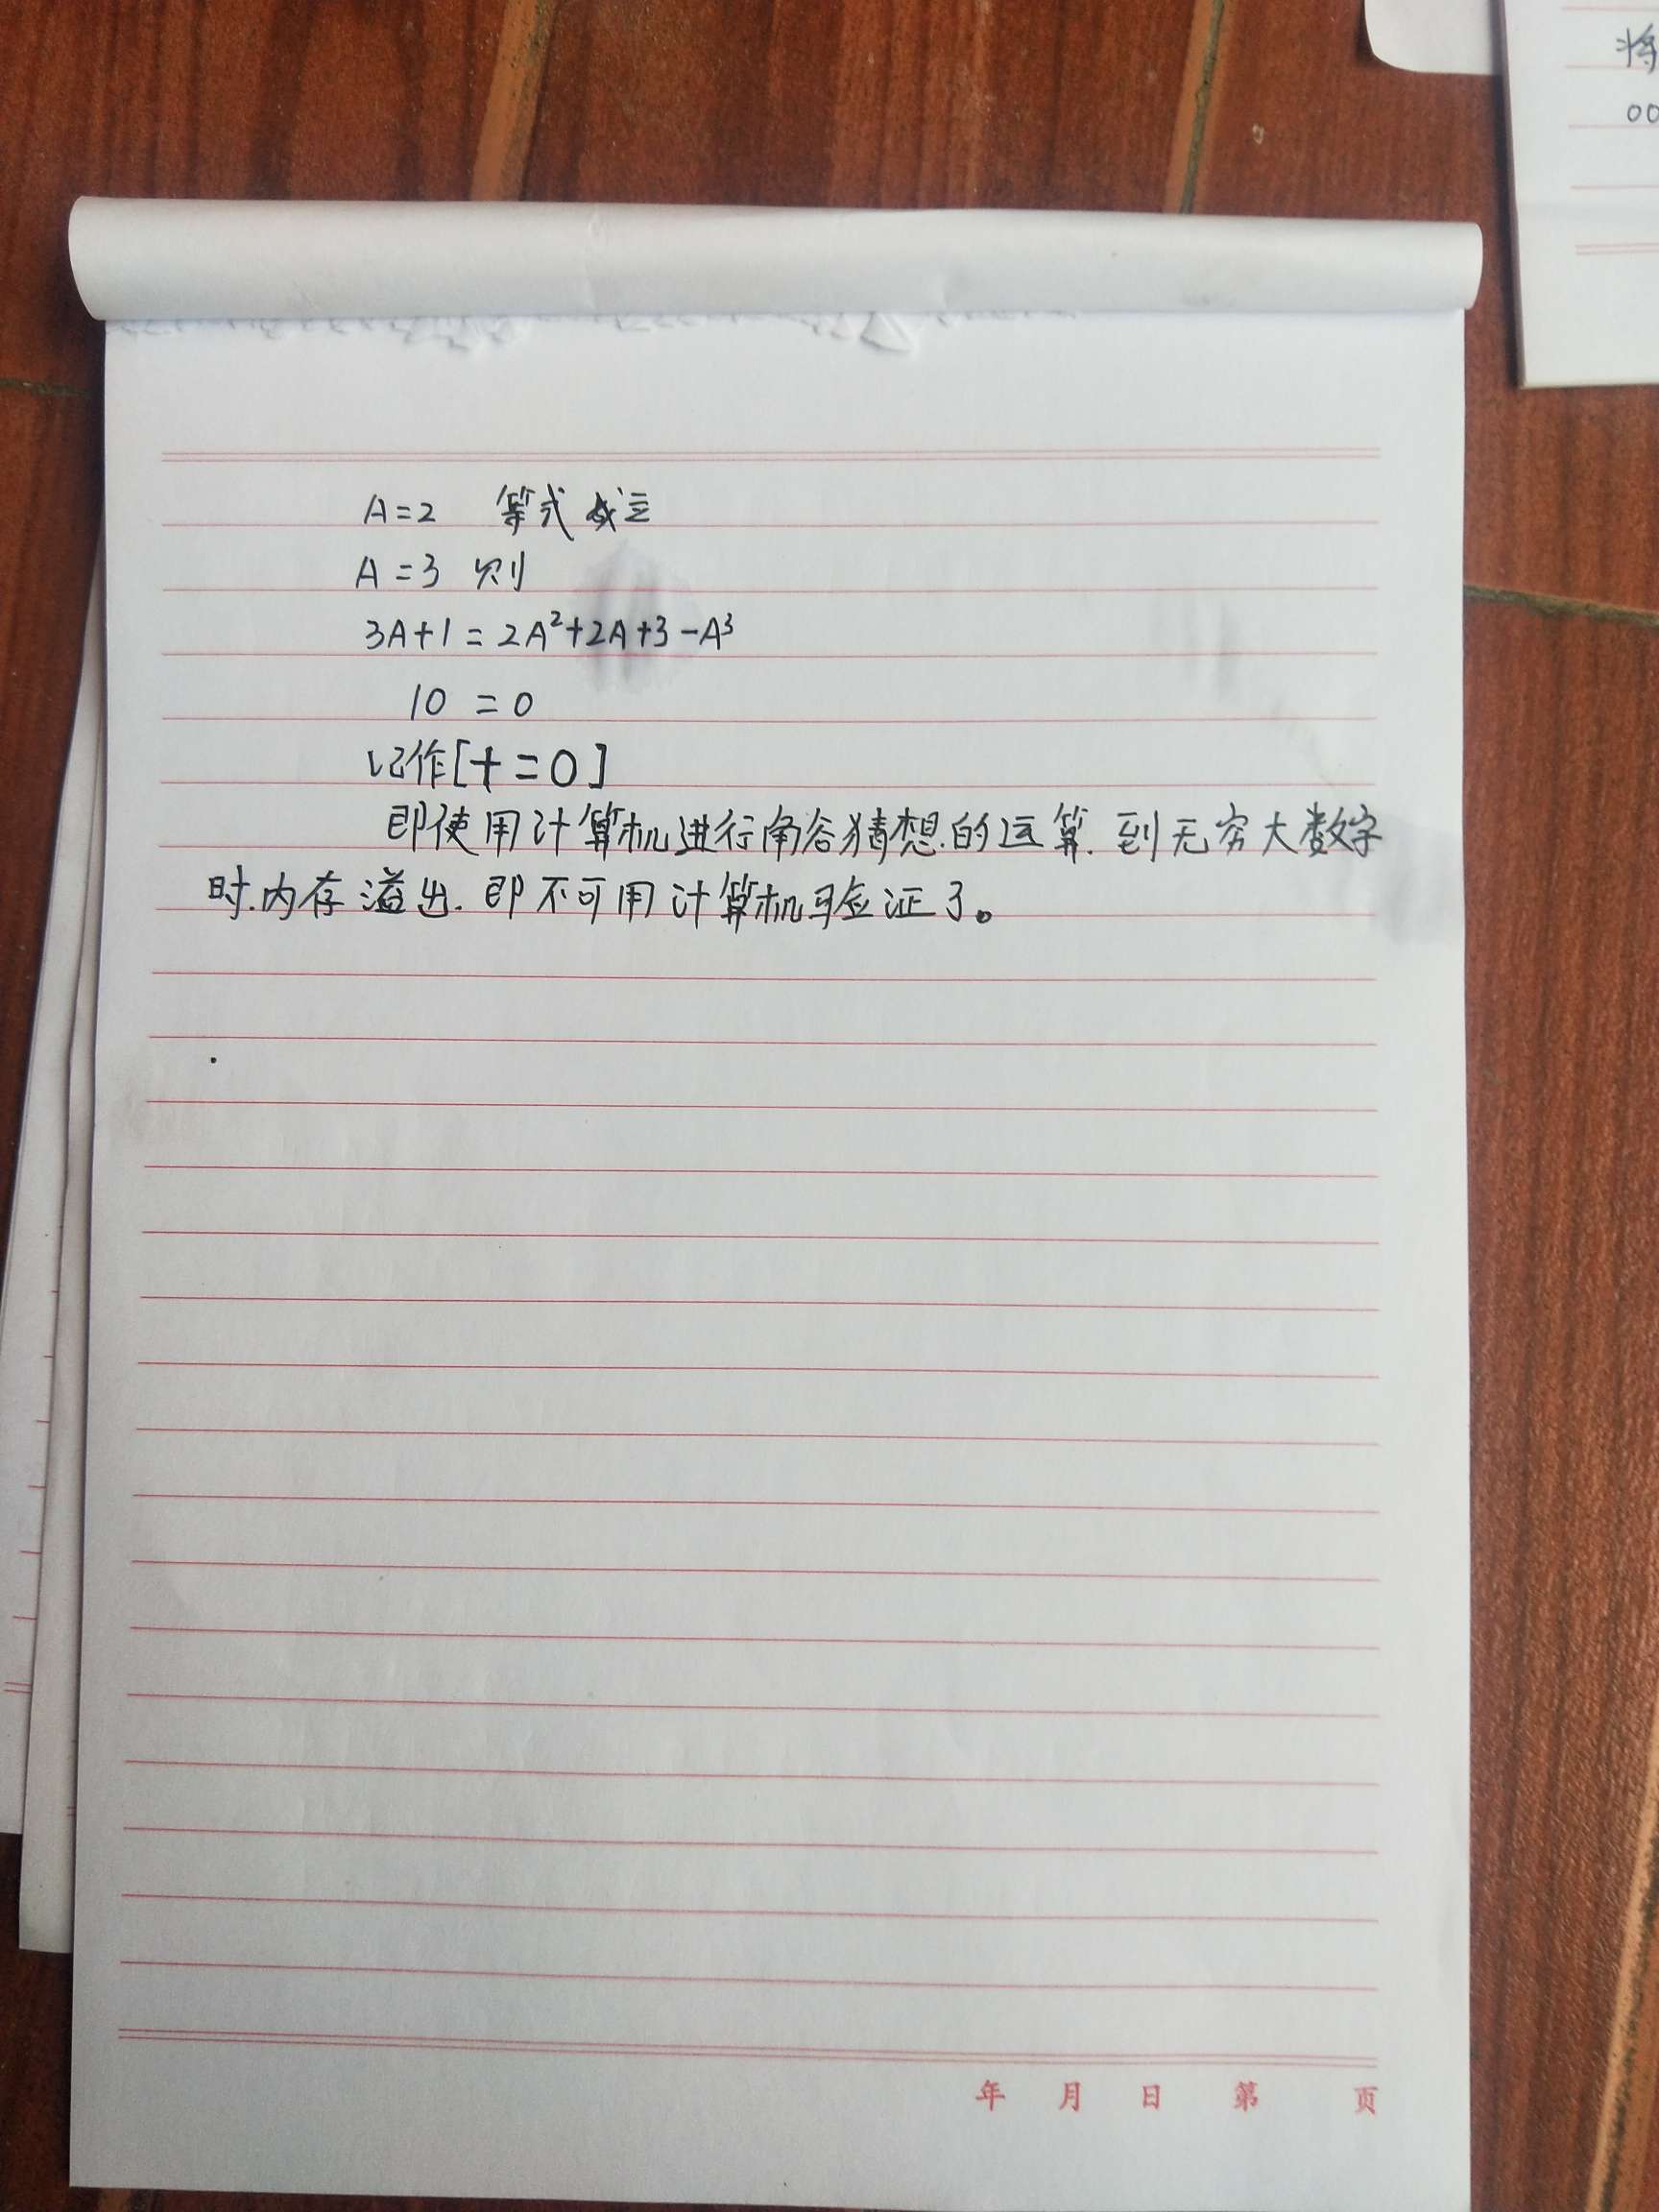 将
00
A=2 等式成立
A=3 则
3A+1=2A²+2A+3-A³
10 =0
记作[十=0]
即使用计算机进行角谷猜想的运算.到无穷大数字
时.内存溢出.即不可用计算机验证了。
年 月 日 第 页